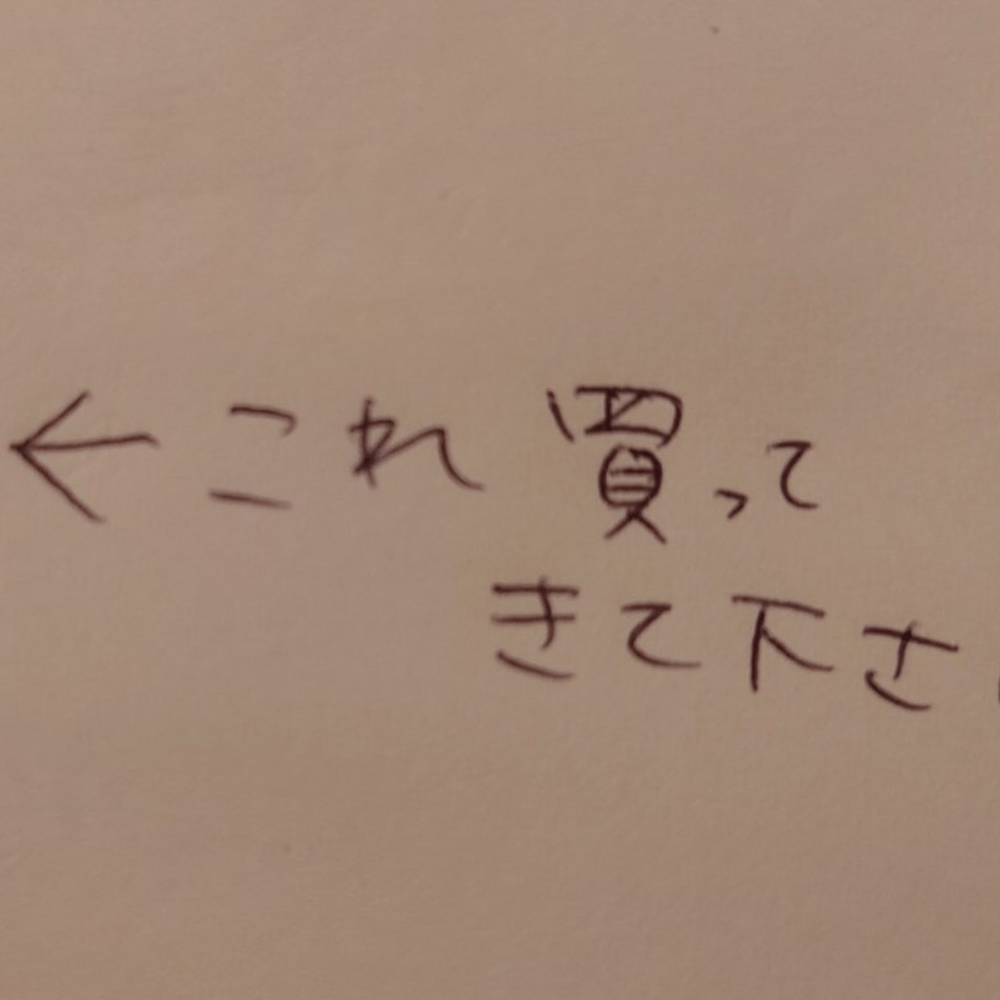 ←これ買って
きて下さ